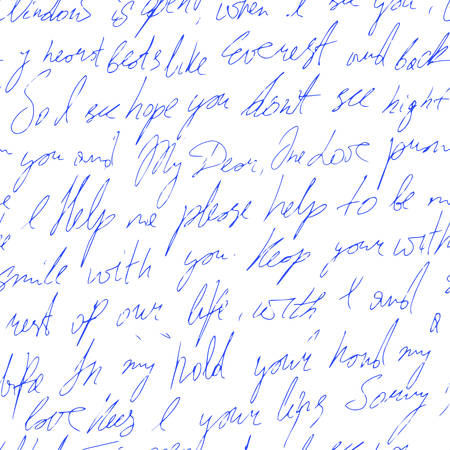 Windows is open, when I see you, I
y heart beats like Everest and back
So I see hope you don't see night
you and My Dear, the Love prom
I Help me please help to be m
smile with you. Keep your with
rest of our life, with I and
In my hold your hand my a
love kiss I your lips Sorry,